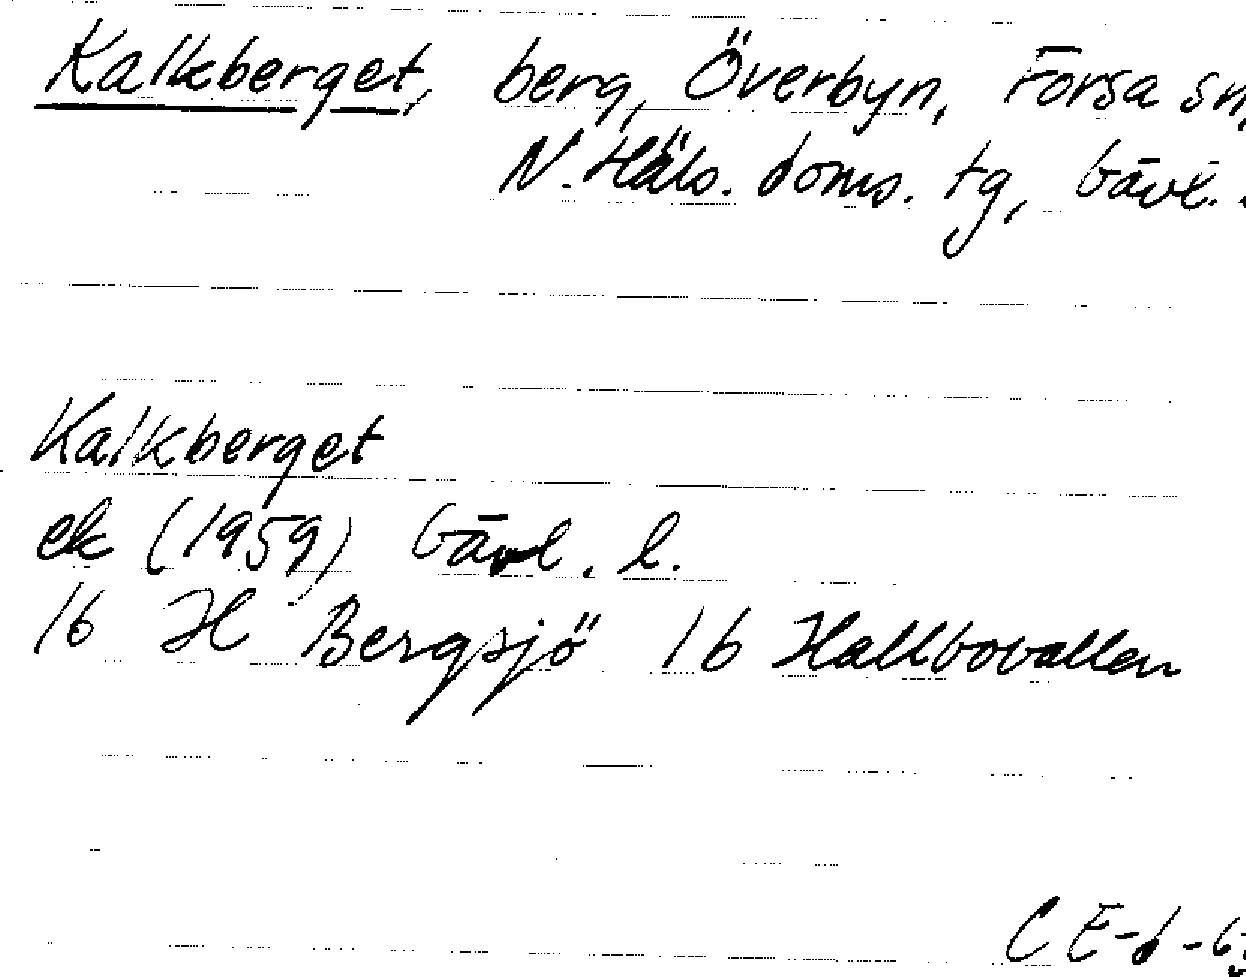 Kalkberget, berg, Överbyn, Forsa sn,
N. Häls. doms. tg, Gävl.
Kalkberget
ek (1959) Gävl. l.
16 H Bergsjö 1b Hallbovallen